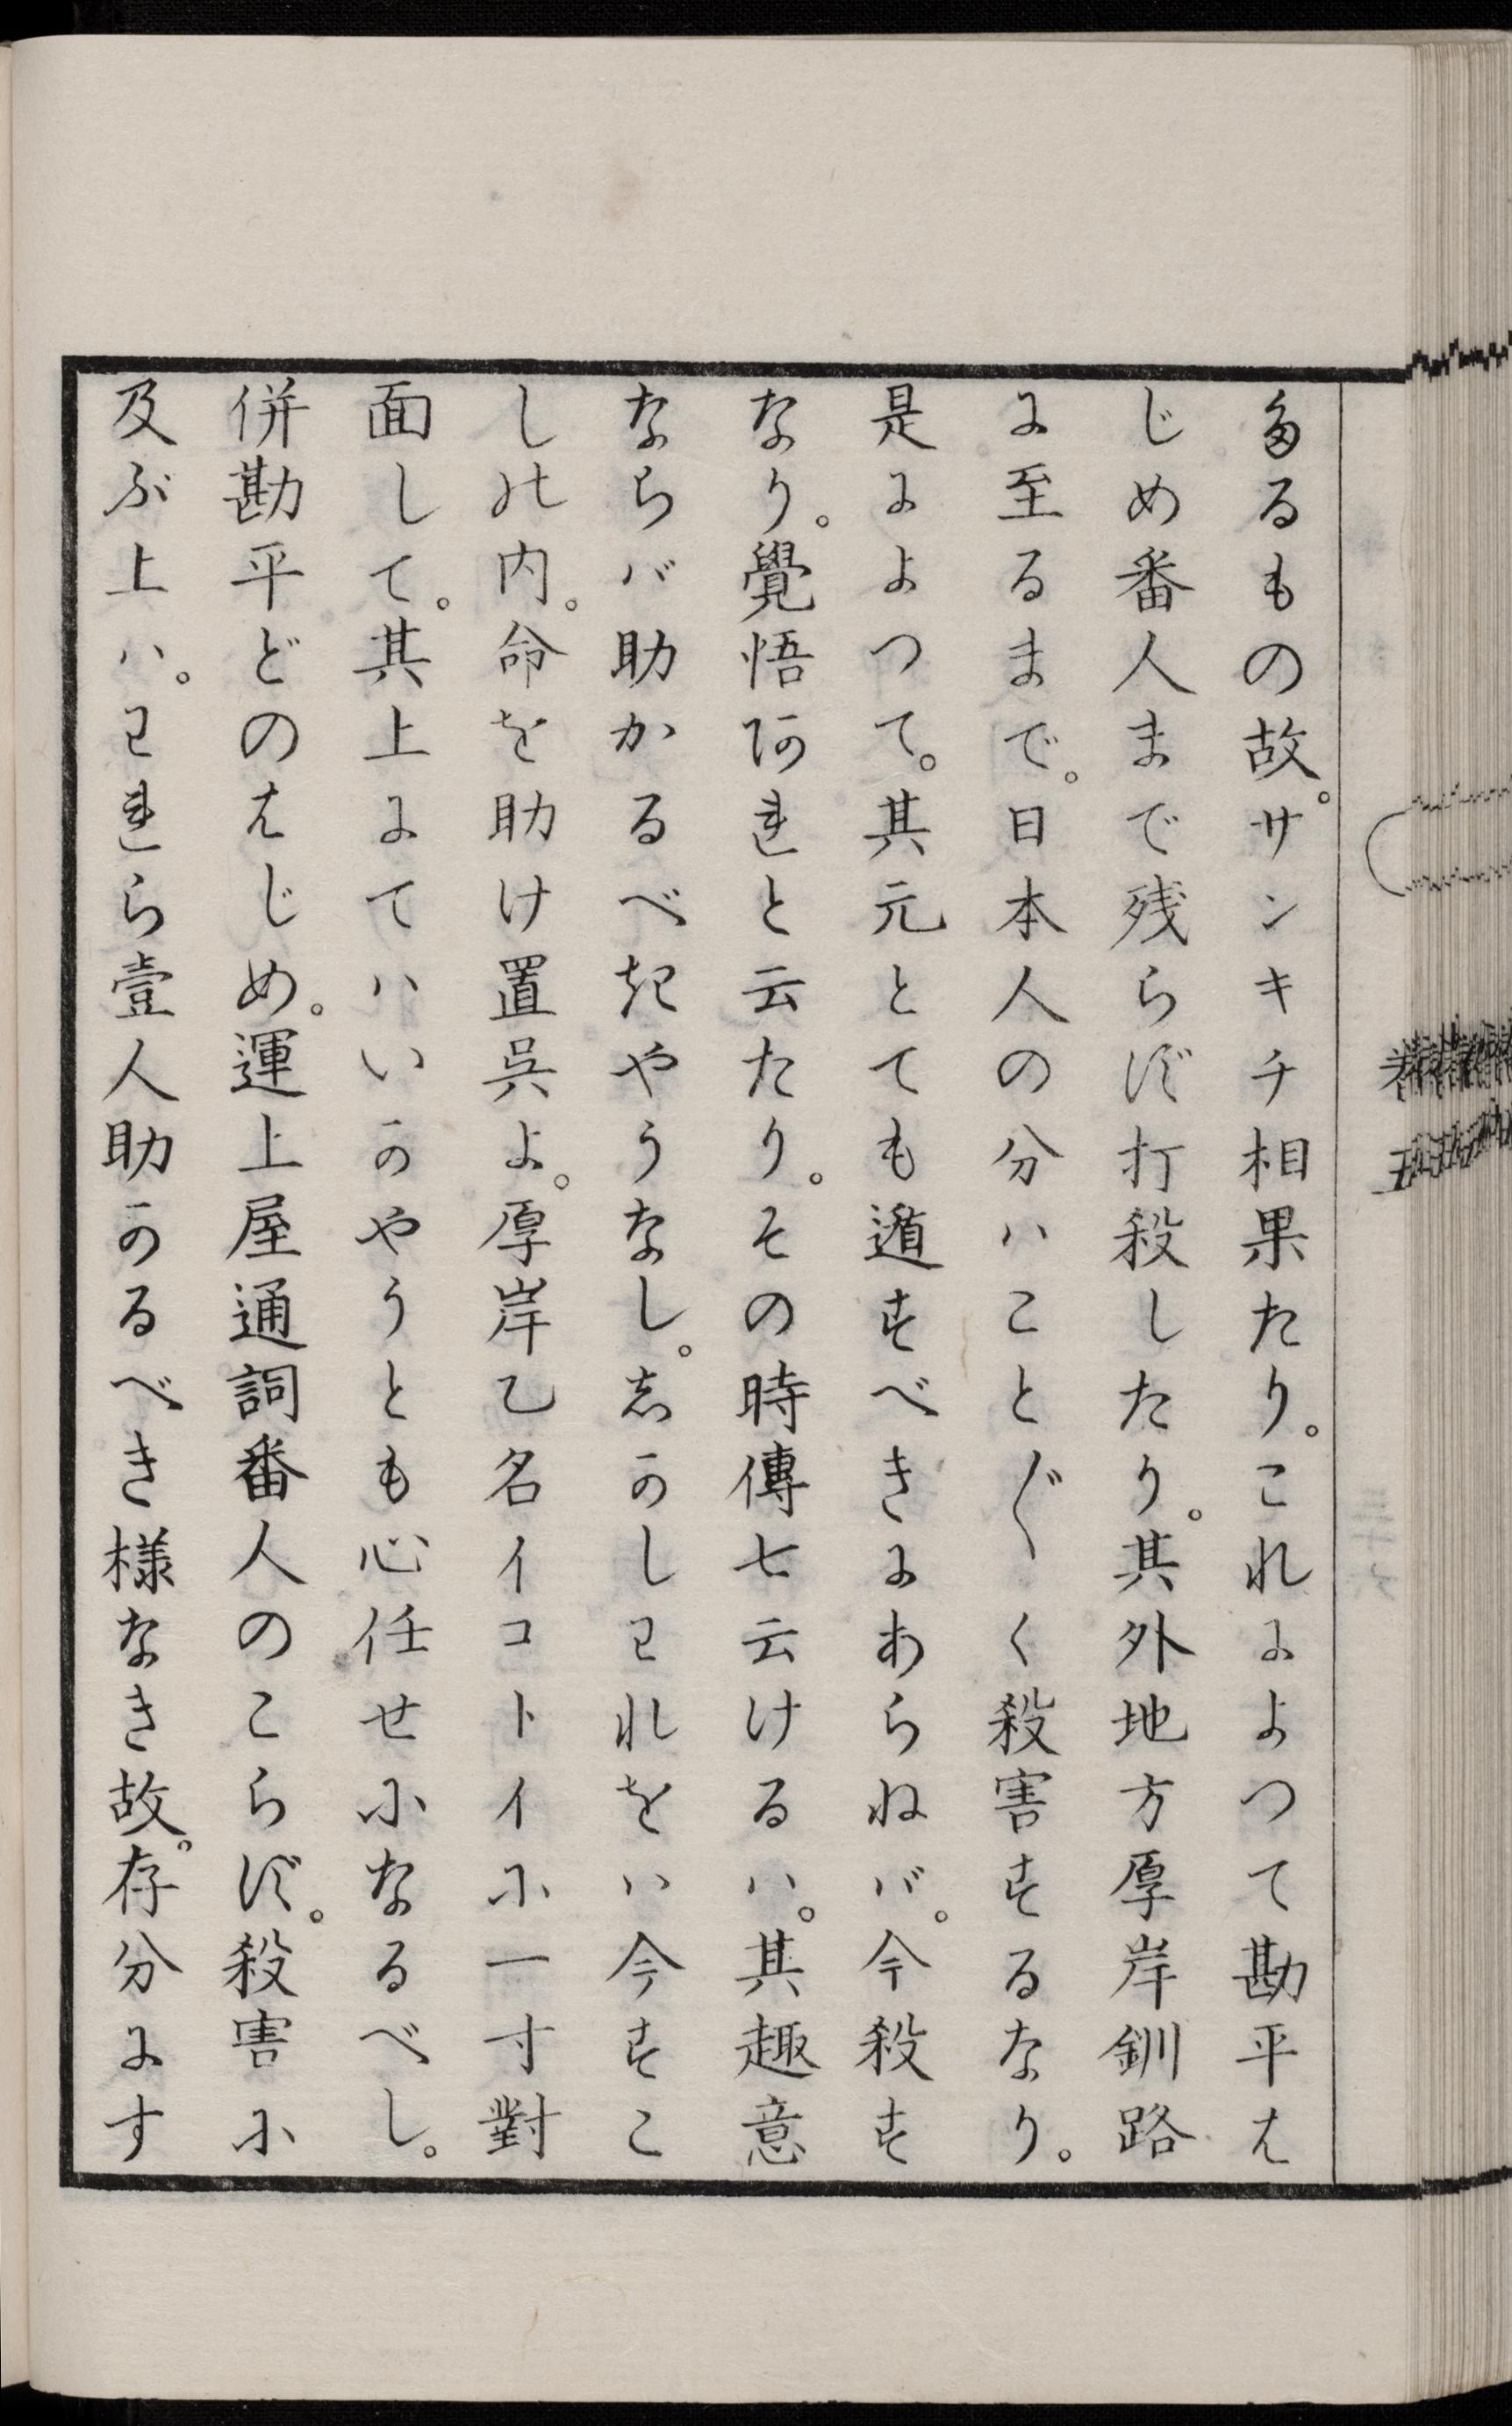 たるもの故。サンキチ相果たり。これによつて勘平は
じめ番人まで残らず打殺したり。其外地方厚岸釧路
に至るまで。日本人の分ハこと〴〵く殺害するなり。
是によつて。其元とても遁すべきにあらねバ。今殺す
なり。覺悟あれと云たり。その時傳七云けるハ。其趣意
ならバ助かるべきやうなし。しかしわれをハ今すこ
しの内。命を助け置呉よ。厚岸乙名イコトイに一寸對
面して。其上にてハいかやうとも心任せになるべし。
併勘平どのはじめ。運上屋通詞番人のこらず。殺害に
及ぶ上ハ。われら壹人助かるべき様なき故。存分にす